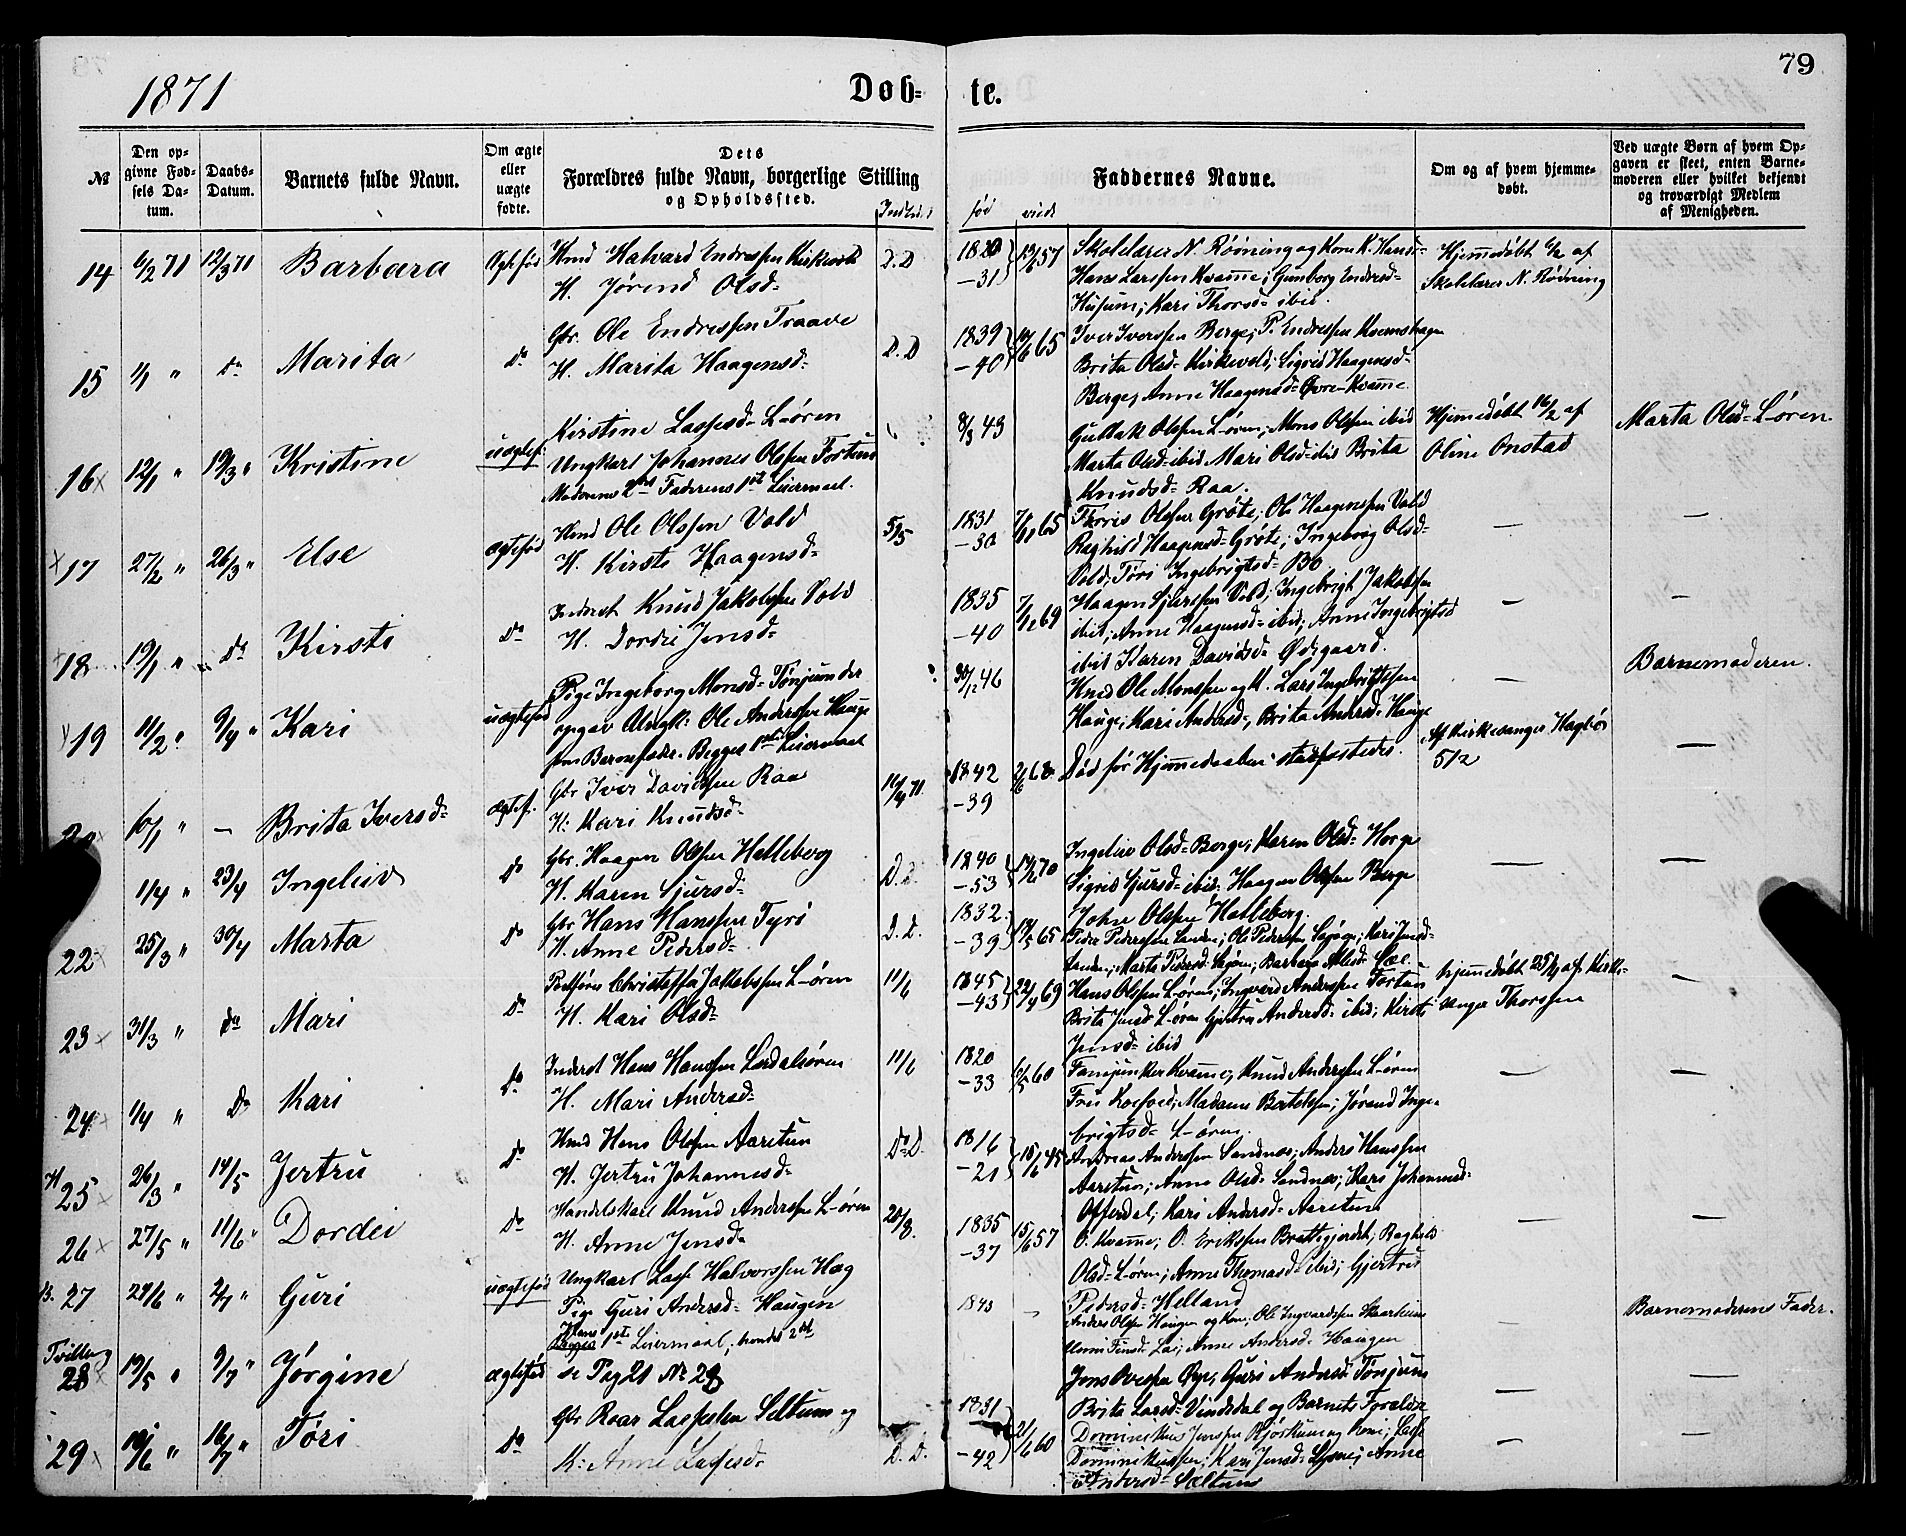 1871
Døb=
te.
79
№
Den op-
givne Fød-
sels Da-
tum.
Daabs-
Datum.
Barnets fulde Navn.
Om ægte
eller
uægte
fødte.
Dets
Forældres fulde Navn, borgerlige Stilling
og Opholdssted.
fød
viede
Faddernes Navne.
Om og af hvem hjemme-
døbt.
Ved uægte Børn af hvem Op-
gaven er skeet, enten Barne-
moderen eller hvilket bekjendt
og troværdigt Medlem
af Menigheden.
14 6/2 71 12/3 71 Barbara Ægtefød
Hmd Halvard Endressen Kirkevold D.D
H. Jørend Olsd=
-31
57
Skolelærer N. Røining og Kone K. Hansd=
Hans Larssen Kvamme; Gunborg Endersd=
Husum; Kari Thorsd= ibid.
Hjemmedøbt 6/2 af
Skolelærer N. Røining
15 1/1 " do Marita do
Gbr. Ole Endressen Traave
H. Marita Haagensd= D.D
1839
-40
65
Iver Iverssen Berge; P. Endressen
Brita Olsd= Kirkevold; Sigrid Haagensd=
Berge; Anne Haagensd= Øvre-Kvamme
16 12/1 " 19/3 " Kristine uægtef.
Kirstine Lassesd= L-øren
Ungkarl Johannes Olssen Fortun
Moderens 2det Faderens 1ste Leiermaal.
8/3 43
Gullak Olssen L-øren; Mons Olssen ibid
Marta Olsd= ibid Mari Olsd= ibid Brita
Knudsd= Raa.
Hjemmedøbt 16/2 af
Oline Onstad
Marta Olsd= L-øren
17 27/2 " 26/3 " Else ægtefød
Hmd Ole Olssen Vold
H. Kirsti Haagensd=
5/5
1831
-30
65
Olssen Grøte; Ole Haagenssen Vold
Ragnild Haagensd= Grøte; Ingeborg Olsd=
Vold; Tøri Ingebrigtsd= Bø
—
—
18 19/1 " do Kirsti do
Inderst Knud Jakobssen Vold
H. Dordei Jensd=
1835
-40
7/12 69
Haagen Sjurssen Vold; Ingebrigt Jakobssen
ibid; Anne Haagensd= ibid; Anne Ingebrigtsd
ibid Karen Davidsd= Ødegaard.
—
—
19 11/2 " 9/4 " Kari uægtefød
Pige Ingeborg Monsd= Tønjum der
opgav Ungk: Ole Anderssen Hauge
som Barnefader. Begges 1ste Leiermaal
30/12 46
Hmd Ole Monssen og K. Lars Ingebrigtssen
Hauge; Kari Andersd=, Brita Andersd= Hauge
—
Barnemoderen.
20 10/1 " — Brita Iversd= ægtef.
Gbr Iver Davidssen Raa
H: Kari Knudsd=
11/4 71
1842
-39
68
Død før Hjemmedaaben stadfæstedes.
Af Kirkesanger Hagbø
5/2
—
1/4 " 23/4 Ingeleiv do
Gbr. Haagen Olssen Helleberg
H. Karen Sjursd= D.D.
1840
-53
70
Ingeleiv Olsd= Berge; Karen Olsd= Horge
Sigrid Sjursd= ibid; Haagen Olssen Berge
John Olssen Helleberg.
—
—
22 25/3 " 30/4 Marta do
Gbr Hans Hanssen Tyri
H. Anne Pedersd= D.D.
1832
-39
65
Peder Pederssen Landen; Ole Pederssen; Kari Jensd=
Marta Pedersd=; Barbara
23 31/3 " do Mari do
Postfører Christoffer Jakobssen L-øren
H. Kari Olsd=
11/6
1845
-43
22/4 69
Hans Olssen L-øren; Ingvard Anderssen Fortun
Brita Jensd= L-øren Gjertru Andersd= ibid; Kirsti
Jensd= ibid
hjemmedøbt 25/4 af Kirke-
sanger Thorssen
—
24 1/4 " do Kari do
Inderst Hans Hanssen Lærdalsøren
H. Mari Andersd=
11/6
1820
-33
60
Fanejunker Kvamme; Knud Anderssen L-øren
Fru; Madame Bertelsen; Jørend Inge-
brigtsd= L-øren.
—
—
25 26/3 " 14/5 Jertru do
Hmd Hans Olssen Aaretun
H. Jertru Johannesd= D.D.
1816
-21
45
Andreas Anderssen Sandnæs; Anders Hanssen
Aaretun; Anne Olsd= Sandnæs; Kari Johannesd=
Offerdal; Kari Andersd= Aaretun
26 27/5 " 11/6 " Dordei do
Handelskarl Knud Anderssen L-øren
H. Anne Jensd=
20/8
1835
-37
15/6 57
O. Kvamme; O. Erikssen Brattegjerdet; Ragnild
Olsd= L-øren; Anne Thomasd= ibid; Gjertrud
Pedersd= Helland
—
—
27 24/6 " 2/7 " Guri uægtefød
Ungkarl Lasse Halvorssen Hæg
Pige Guri Andersd= Haugen
1ste Leiermaal, hendes 2det
1843 —
Anders Olssen Haugen og Kone; Ole Ingvardssen Skaarheim
Anne Andersd= Haugen
—
Barnemoderens Fader.
Tvilling
28 19/5 " 9/7 " Jørgine ægtefød
se Pag 21 № 28
Jens Øye; Guri Andersd= Tønjum
Brita Larsd= Vindedal og Barnets Forældre
—
—
29 10/6 " 16/7 " Tøri do
Gbr Roar Lassessen Seltun og
K: Anne Lassesd= D.D.
1831
-42
60
Dominikus Jenssen og Kone; Lasse
Dominikussen; Kari Jensd= Lysne; Anne
Andersd= Sæltun
—
—